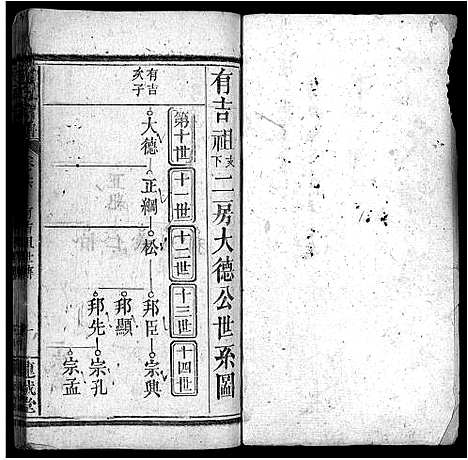 有吉祖支下二房大德公世系圖
第十世
十一世
十二世
十三世
十四世
有吉
次子
大德
正綱
松
邦臣
宗興
邦顯
邦先
宗孔
宗孟